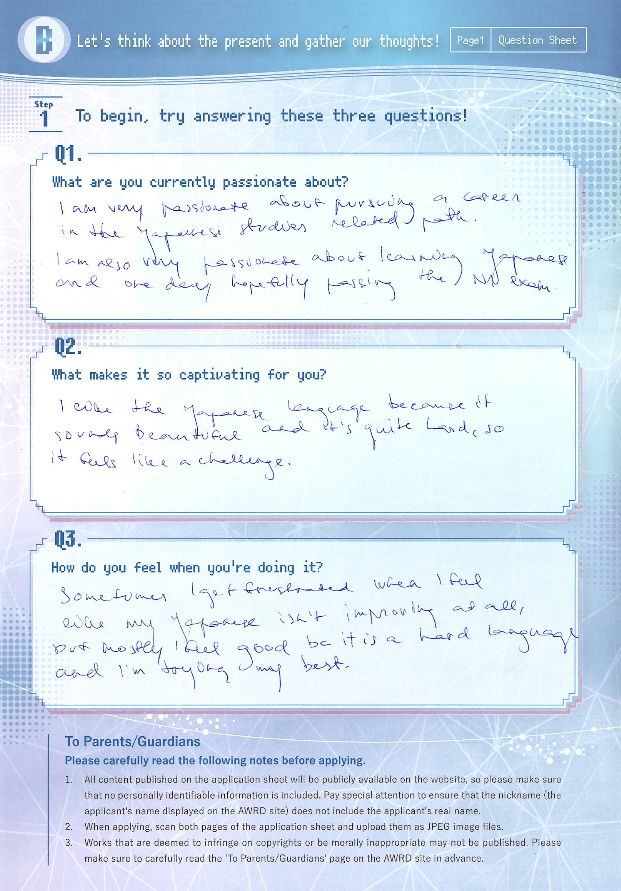 Let's think about the present and gather our thoughts!
Page1
Question Sheet
Step
1
To begin, try answering these three questions!
Q1.
What are you currently passionate about?
I am very passionate about pursuing a career
in the Japanese studies related path.
I am also very passionate about learning Japanese
and one day hopefully passing the N1 exam.
Q2.
What makes it so captivating for you?
I like the Japanese language because it
sounds beautiful and it's quite hard, so
it feels like a challenge.
Q3.
How do you feel when you're doing it?
Sometimes I get frustrated when I feel
like my Japanese isn't improving at all,
but mostly I feel good bc it is a hard language
and I'm trying my best.
To Parents/Guardians
Please carefully read the following notes before applying.
1. All content published on the application sheet will be publicly available on the website, so please make sure
that no personally identifiable information is included. Pay special attention to ensure that the nickname (the
applicant's name displayed on the AWRD site) does not include the applicant's real name.
2. When applying, scan both pages of the application sheet and upload them as JPEG image files.
3. Works that are deemed to infringe on copyrights or be morally inappropriate may not be published. Please
make sure to carefully read the 'To Parents/Guardians' page on the AWRD site in advance.